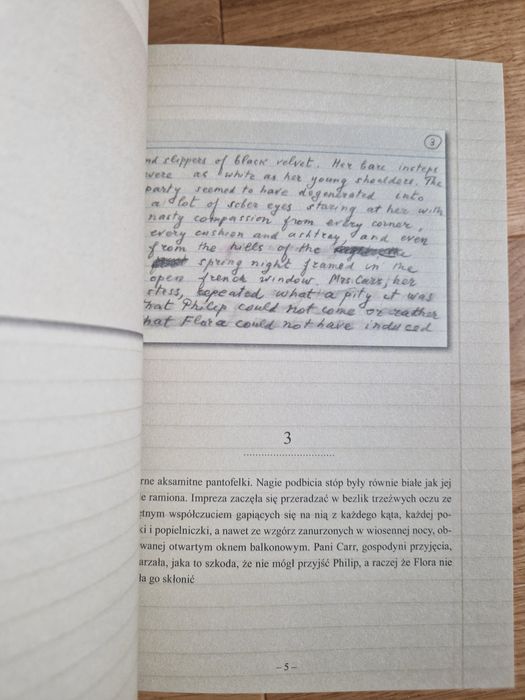 3
nd slippers of black velvet. Her bare insteps
were as white as her young shoulders. The
party seemed to have degenerated into
a lot of sober eyes staring at her with
nasty compassion from every corner,
every cushion and ashtray, and even
from the hills of the
spring night framed in the
open french window. Mrs. Carr, her
stess, repeated what a pity it was
hat Philip could not come or rather
hat Flora could not have induced
3
rne aksamitne pantofelki. Nagie podbicia stóp były równie białe jak jej
e ramiona. Impreza zaczęła się przeradzać w bezlik trzeźwych oczu ze
ętnym współczuciem gapiących się na nią z każdego kąta, każdej po-
ki i popielniczki, a nawet ze wzgórz zanurzonych w wiosennej nocy, ob-
wanej otwartym oknem balkonowym. Pani Carr, gospodyni przyjęcia,
arzała, jaka to szkoda, że nie mógł przyjść Philip, a raczej że Flora nie
ła go skłonić
– 5 –